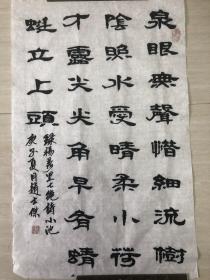 泉眼無聲惜細流樹
陰照水愛晴柔小荷
才露尖尖角早有蜻
蜓立上頭
錄楊萬里七绝詩小池
庚子夏月趙士傑